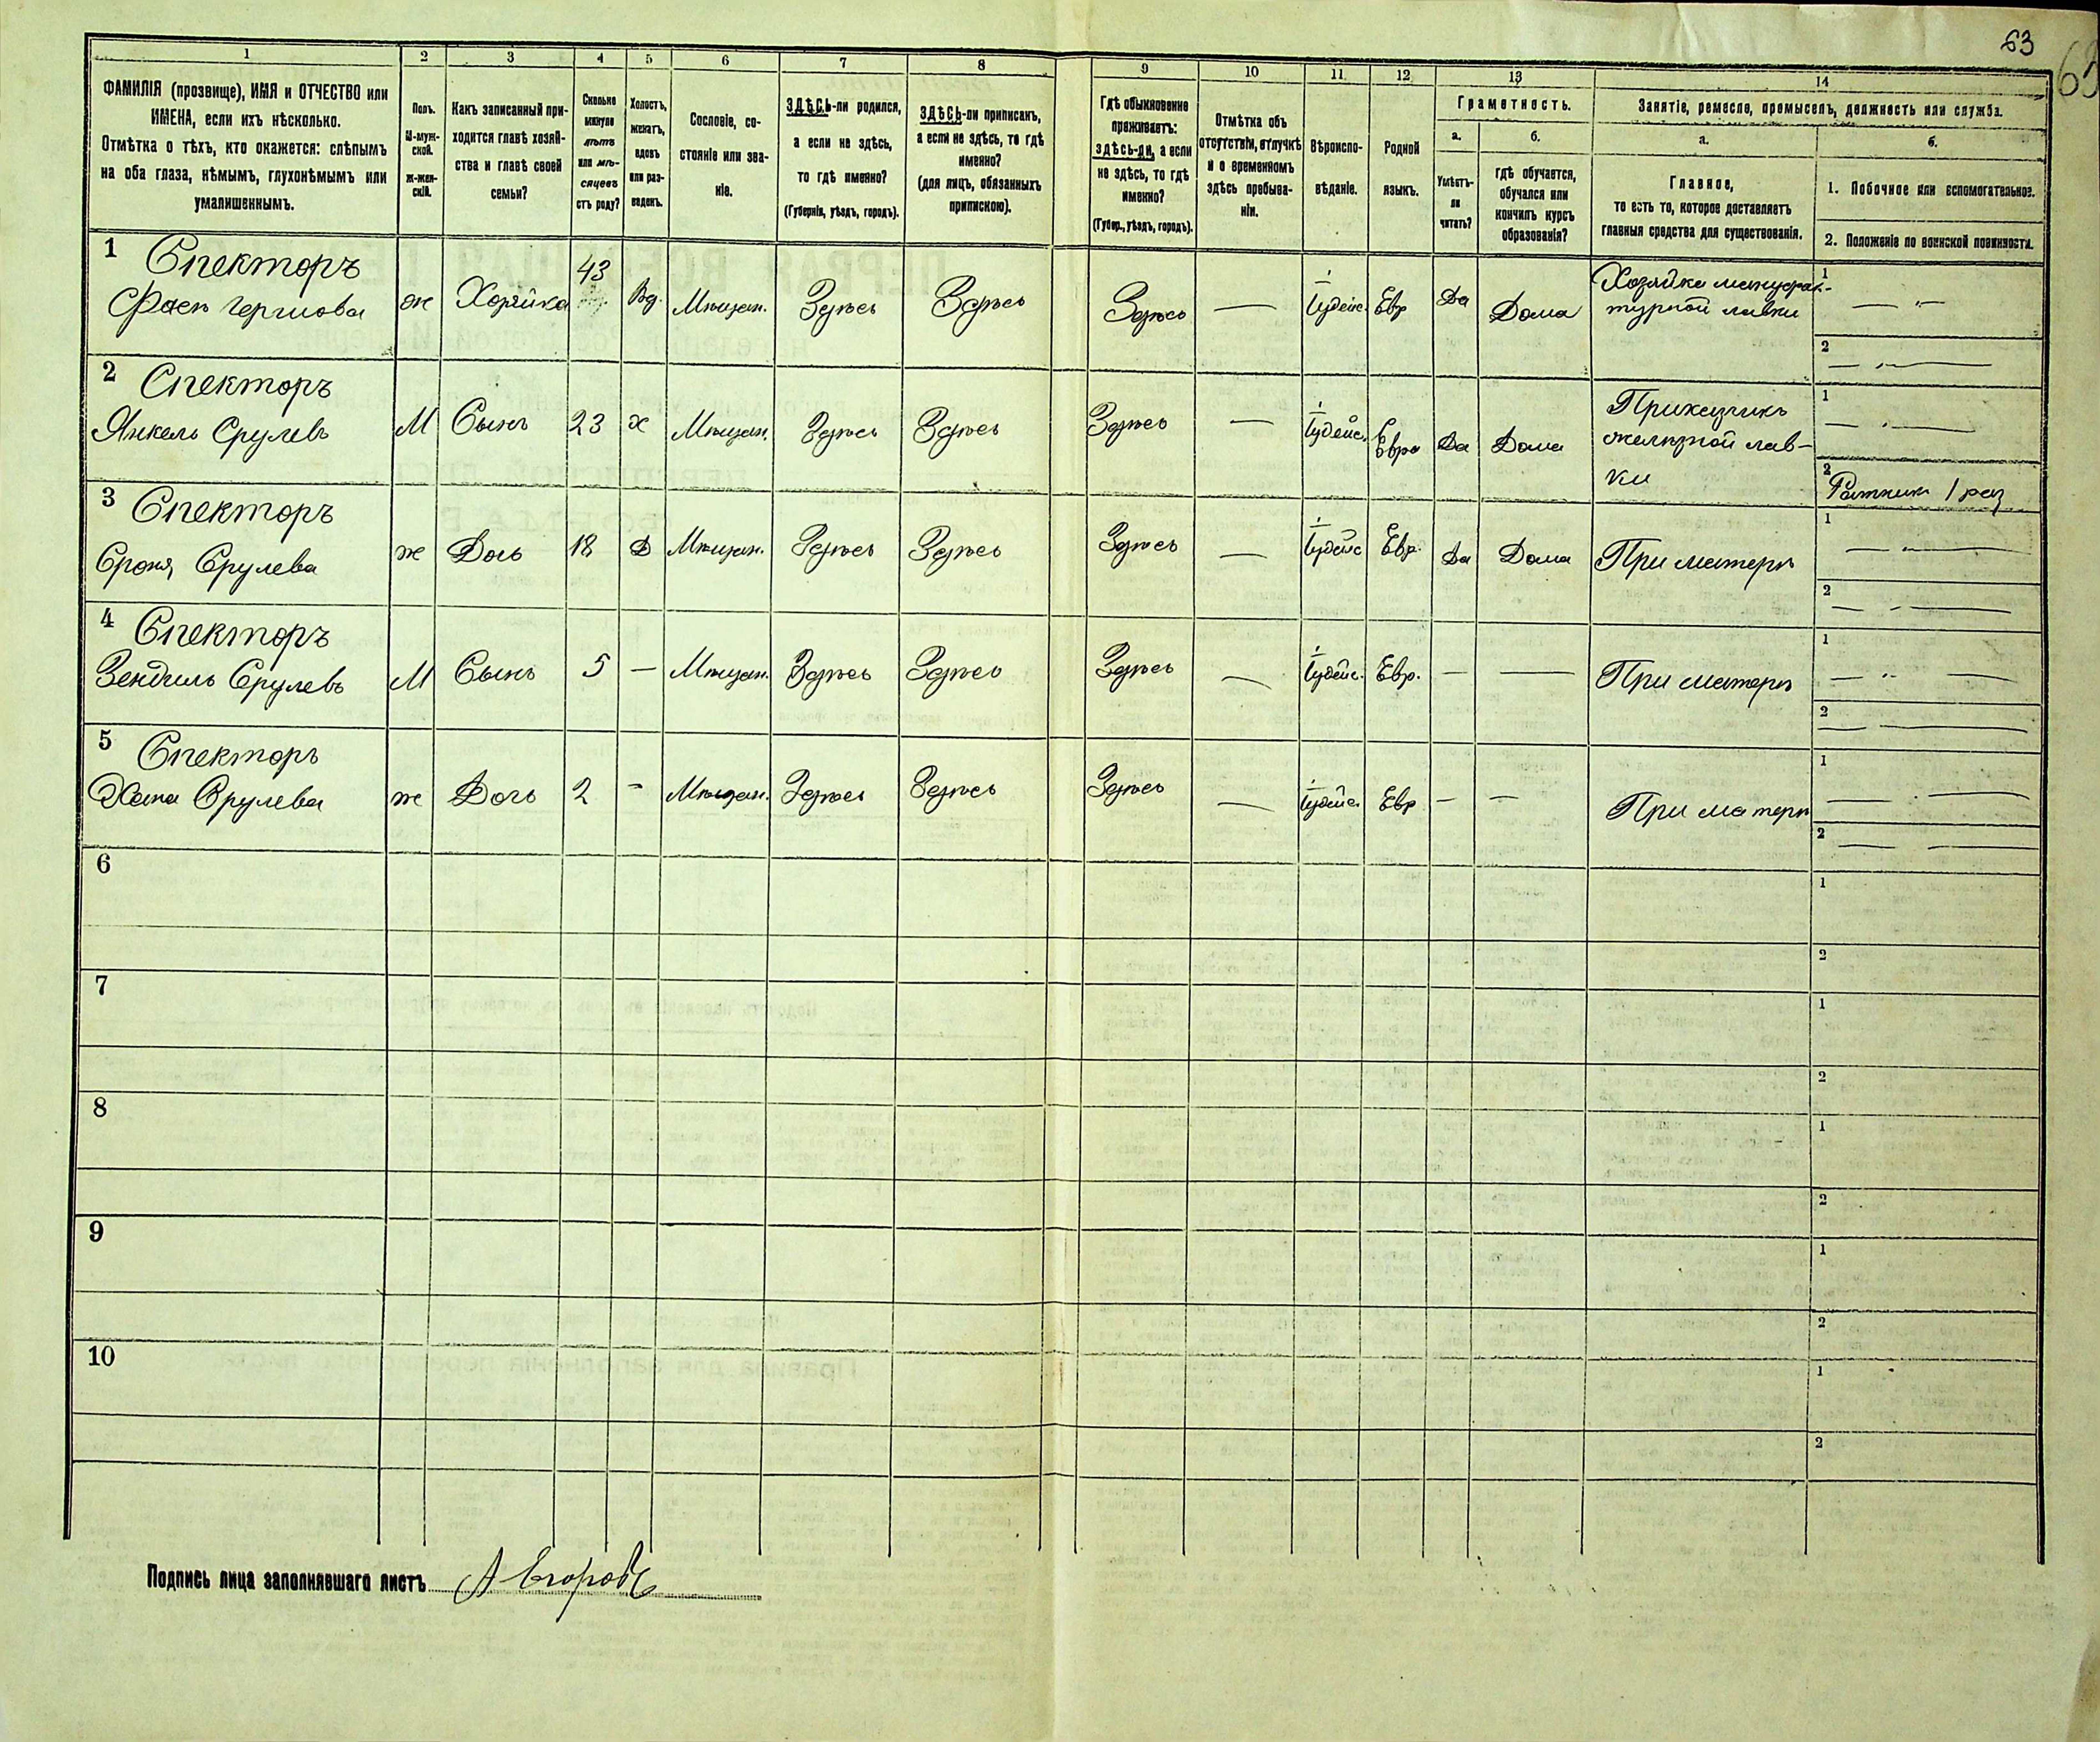 63
1 2 3 4 5 6 7 8 9 10 11 12 13 14
ФАМИЛІЯ (прозвище), ИМЯ и ОТЧЕСТВО или
ИМЕНА, если ихъ нѣсколько.
Отмѣтка о тѣхъ, кто окажется: слѣпымъ
на оба глаза, нѣмымъ, глухонѣмымъ или
умалишеннымъ.
Полъ.
М-муж-
ской.
ж-жен-
скій.
Какъ записанный при-
ходится главѣ хозяй-
ства и главѣ своей
семьи?
Сколько
минуло
лѣтъ
или мѣ-
сяцевъ
отъ роду?
Холостъ,
женатъ,
вдовъ
или раз-
веденъ.
Сословіе, со-
стояніе или зва-
ніе.
ЗДѢСЬ-ли родился,
а если не здѣсь,
то гдѣ именно?
(Губернія, уѣздъ, городъ).
ЗДѢСЬ-ли приписанъ,
а если не здѣсь, то гдѣ
именно?
(для лицъ, обязанныхъ
припискою).
Гдѣ обыкновенно
проживаетъ:
здѣсь-ли, а если
не здѣсь, то гдѣ
именно?
(Губер., уѣздъ, городъ).
Отмѣтка объ
отсутствіи, отлучкѣ
и о временномъ
здѣсь пребыва-
ніи.
Вѣроиспо-
вѣданіе.
Родной
языкъ.
Грамотность.
а.
Умѣетъ-
ли
читать?
б.
гдѣ обучается,
обучался или
кончилъ курсъ
образованія?
Занятіе, ремесло, промыселъ, должность или служба.
а.
Главное,
то есть то, которое доставляетъ
главныя средства для существованія.
б.
1. Побочное или вспомогательное.
2. Положеніе по воинской повинности.
1 Спекторъ
ж Хозяйка 43 Вд. Мѣщан. Здѣсь Здѣсь Здѣсь — Іудейс. Евр Да Дома
Хозяйка мануфак-
турной лавки
1 —
2 —
2 Спекторъ
Янкель Срулевъ М Сынъ 23 х Мѣщан. Здѣсь Здѣсь Здѣсь — Іудейс. Евре Да Дома
Прикащикъ
желѣзной лав-
ки
1 —
2 Ратникъ 1 раз
3 Спекторъ
Сроня Срулева ж Дочь 18 Д Мѣщан. Здѣсь Здѣсь Здѣсь — Іудейс Евр. Да Дома При матери
1 —
2 —
4 Спекторъ
Зендиль Срулевъ М Сынъ 5 — Мѣщан. Здѣсь Здѣсь Здѣсь — Іудейс. Евр. — — При матери
1 —
2 —
5 Спекторъ
Хана Срулева ж Дочь 2 - Мѣщан. Здѣсь Здѣсь Здѣсь — Іудейс Евр — — При матери
1 —
2 —
6
1
2
7
1
2
8
1
2
9
1
2
10
1
2
Подпись лица заполнявшаго листъ А Егоровъ